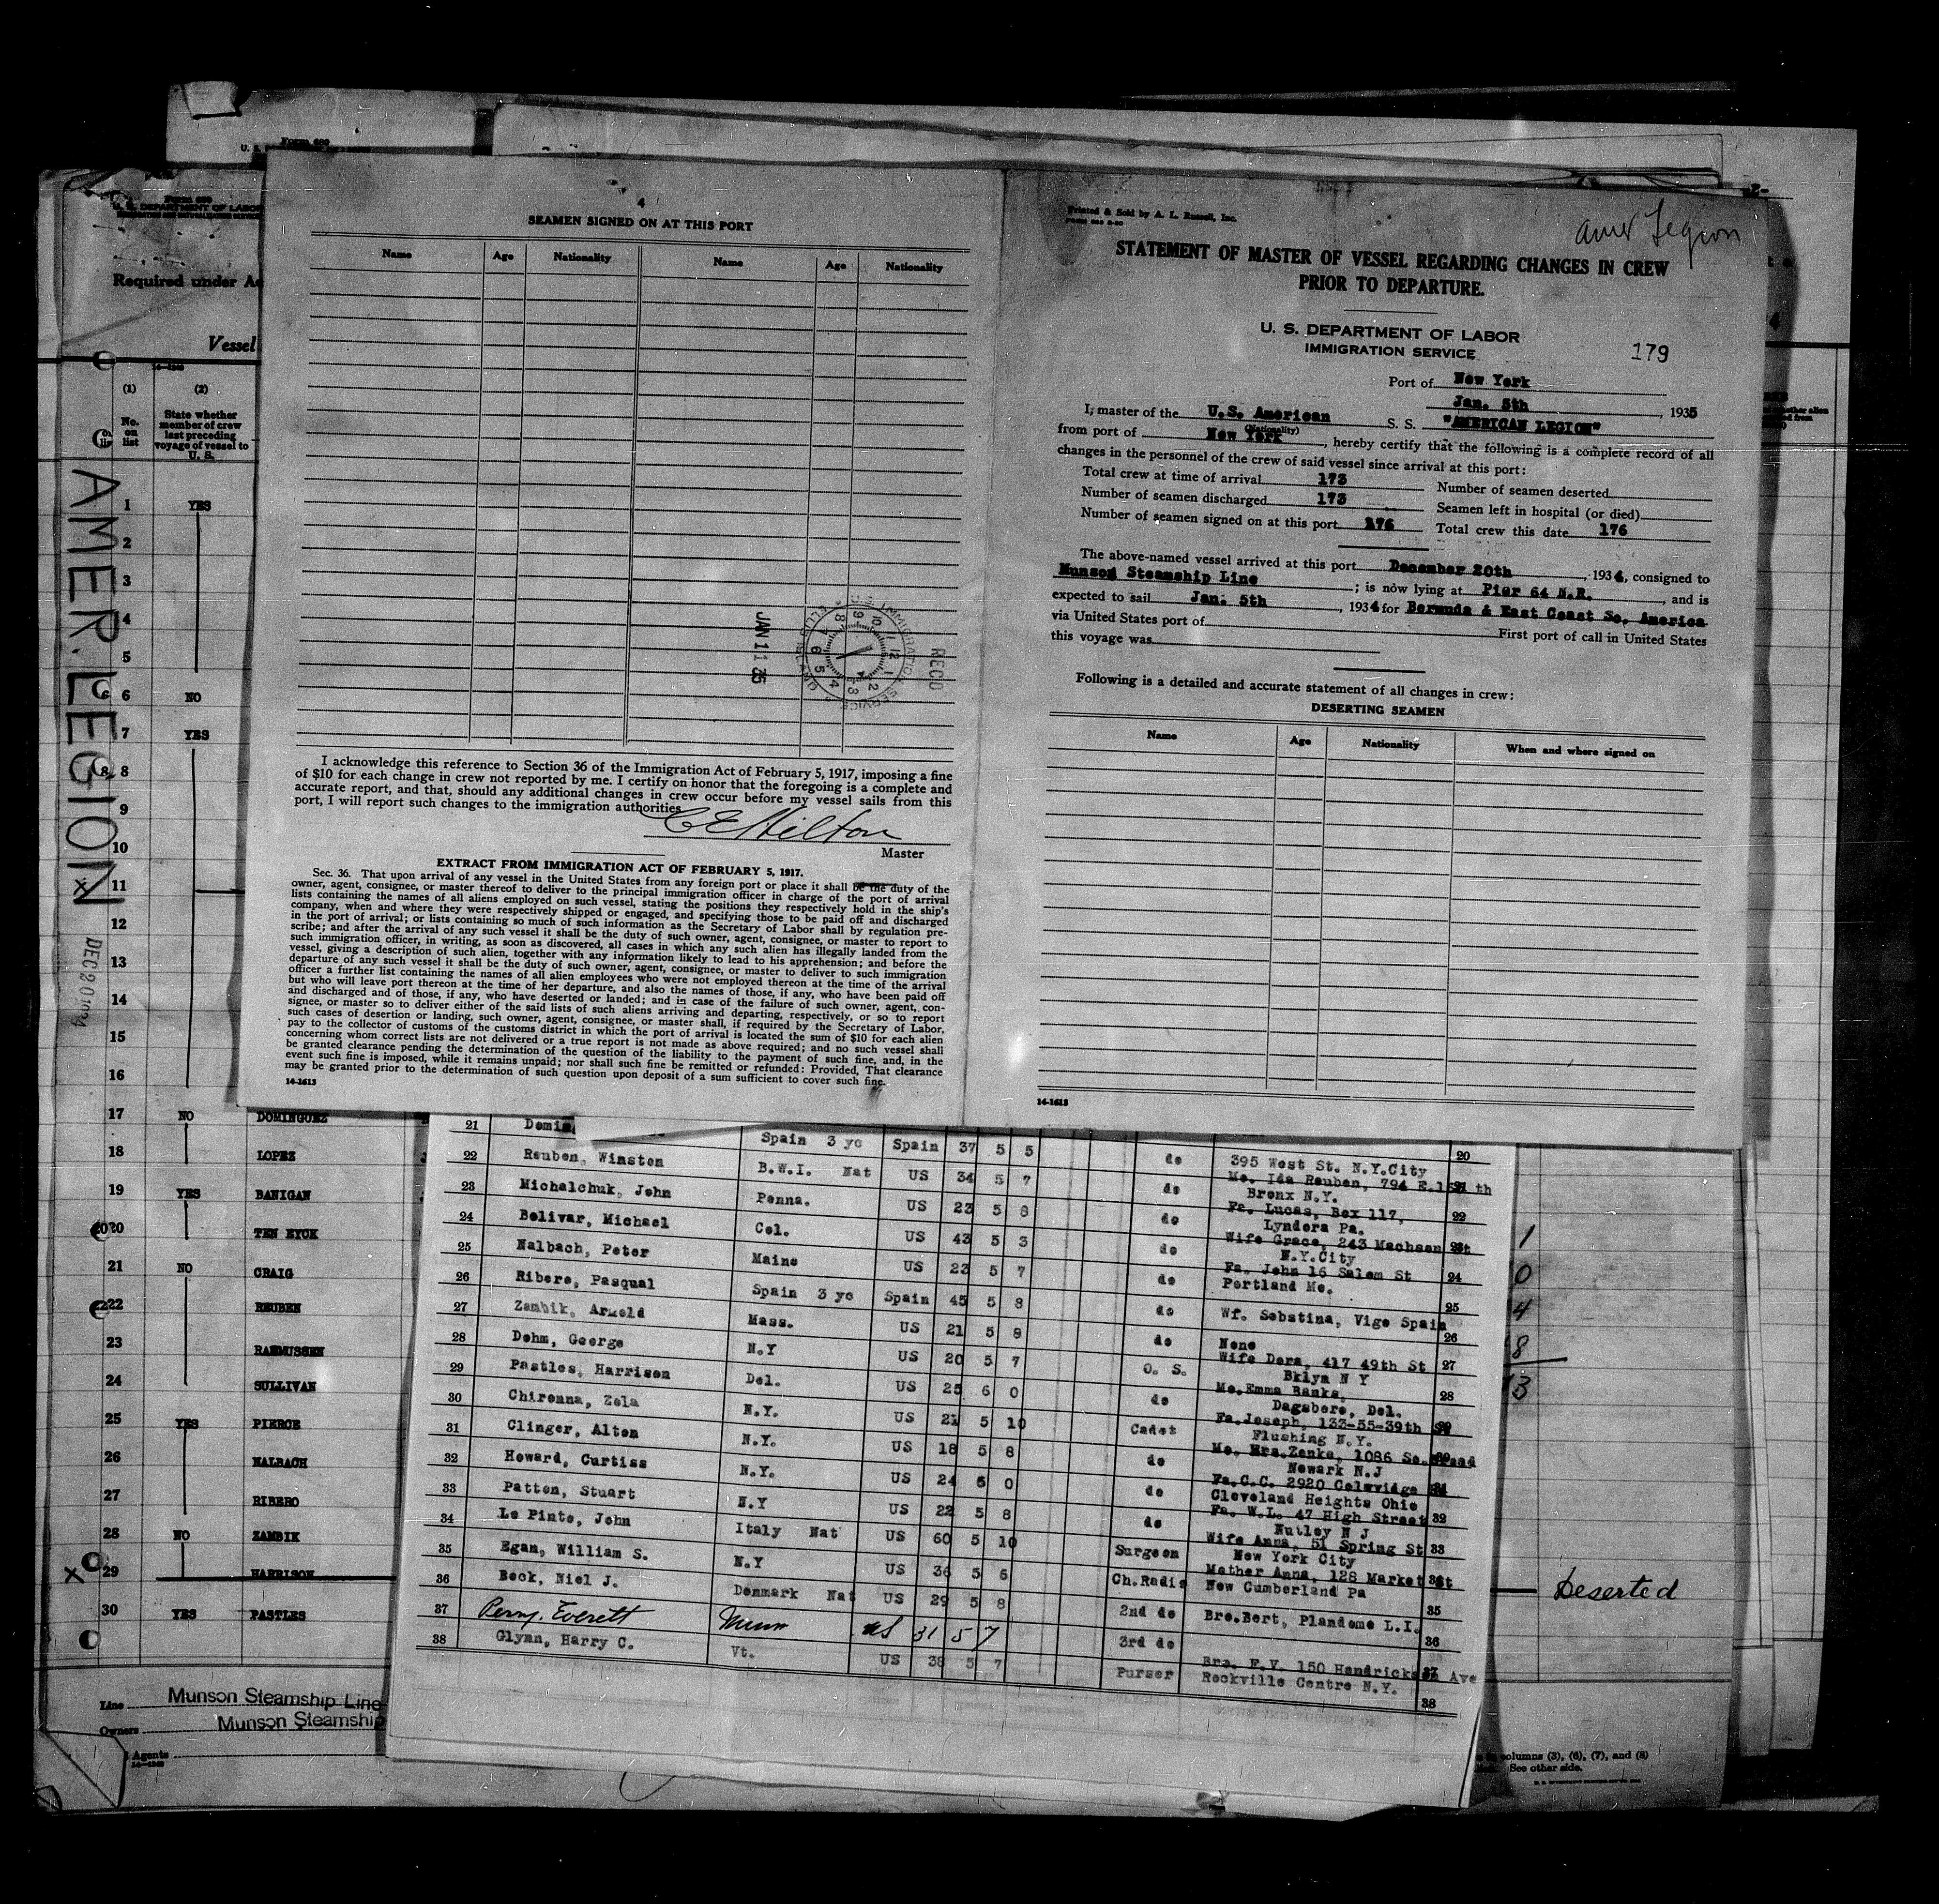 Form 680
U. S.
Form 680
U. S. DEPARTMENT OF LABOR
Required under Ac
Vessel
14—1240
(1)
No.
on
list
(2)
State whether
member of crew
last preceding
voyage of vessel to
U. S.
AMER. LEGION
DEC 20 1934
1 YES
2
3
4
5
6 NO
7 YES
8
9
10
x 11
12
13
14
15
16
17 NO DOMINGUEZ
18 LOPEZ
19 YES BANIGAN
20 TEN EYCK
21 NO CRAIG
22 REUBEN
23 RASMUSSEN
24 SULLIVAN
25 YES PIERCE
26 NALBACH
27 RIBERO
28 NO ZAMBIK
x 29 HARRISON Deserted
30 YES PASTLES
Line Munson Steamship Line
Owners Munson Steamship
Agents
14—1240
columns (3), (6), (7), and (8)
See other side.
4
SEAMEN SIGNED ON AT THIS PORT
Name Age Nationality Name Age Nationality
JAN 11 35
U.S. IMMIGRATION SERVICE
RECD
I acknowledge this reference to Section 36 of the Immigration Act of February 5, 1917, imposing a fine
of $10 for each change in crew not reported by me. I certify on honor that the foregoing is a complete and
accurate report, and that, should any additional changes in crew occur before my vessel sails from this
port, I will report such changes to the immigration authorities.
C E Hilton
Master
EXTRACT FROM IMMIGRATION ACT OF FEBRUARY 5, 1917.
Sec. 36. That upon arrival of any vessel in the United States from any foreign port or place it shall be the duty of the
owner, agent, consignee, or master thereof to deliver to the principal immigration officer in charge of the port of arrival
lists containing the names of all aliens employed on such vessel, stating the positions they respectively hold in the ship's
company, when and where they were respectively shipped or engaged, and specifying those to be paid off and discharged
in the port of arrival; or lists containing so much of such information as the Secretary of Labor shall by regulation pre-
scribe; and after the arrival of any such vessel it shall be the duty of such owner, agent, consignee, or master to report to
such immigration officer, in writing, as soon as discovered, all cases in which any such alien has illegally landed from the
vessel, giving a description of such alien, together with any information likely to lead to his apprehension; and before the
departure of any such vessel it shall be the duty of such owner, agent, consignee, or master to deliver to such immigration
officer a further list containing the names of all alien employees who were not employed thereon at the time of the arrival
but who will leave port thereon at the time of her departure, and also the names of those, if any, who have been paid off
and discharged and of those, if any, who have deserted or landed; and in case of the failure of such owner, agent, con-
signee, or master so to deliver either of the said lists of such aliens arriving and departing, respectively, or so to report
such cases of desertion or landing, such owner, agent, consignee, or master shall, if required by the Secretary of Labor,
pay to the collector of customs of the customs district in which the port of arrival is located the sum of $10 for each alien
concerning whom correct lists are not delivered or a true report is not made as above required; and no such vessel shall
be granted clearance pending the determination of the question of the liability to the payment of such fine, and, in the
event such fine is imposed, while it remains unpaid; nor shall such fine be remitted or refunded: Provided, That clearance
may be granted prior to the determination of such question upon deposit of a sum sufficient to cover such fine.
14-1613
Printed & Sold by A. L. Russell, Inc.
Amer Legion
STATEMENT OF MASTER OF VESSEL REGARDING CHANGES IN CREW
PRIOR TO DEPARTURE.
U. S. DEPARTMENT OF LABOR
IMMIGRATION SERVICE
179
Port of New York
Jan. 5th, 1935
I, master of the U.S. American S. S. "AMERICAN LEGION"
(Nationality)
from port of New York, hereby certify that the following is a complete record of all
changes in the personnel of the crew of said vessel since arrival at this port:
Total crew at time of arrival 173 Number of seamen deserted
Number of seamen discharged 173 Seamen left in hospital (or died)
Number of seamen signed on at this port 176 Total crew this date 176
The above-named vessel arrived at this port December 20th, 1934, consigned to
Munson Steamship Line; is now lying at Pier 64 N.R., and is
expected to sail Jan. 5th, 1934 for Bermuda & East Coast So. America
via United States port of First port of call in United States
this voyage was
Following is a detailed and accurate statement of all changes in crew:
DESERTING SEAMEN
Name Age Nationality When and where signed on
14-1613
21 Domin Spain 3 yo Spain 37 5 5 do 395 West St. N.Y.City 20
22 Reuben, Winston B.W.I. Nat US 34 5 7 do Mo. Ida Reuben, 794 E. th
Bronx N.Y.
23 Michalchuk, John Penna. US 23 5 8 do Fa. Lucas, Box 117, 22
Lyndora Pa.
24 Bolivar, Michael Col. US 43 5 3 do Wife Grace, 243 Machson St
N.Y.City
25 Nalbach, Peter Maine US 23 5 7 do Fa. John 16 Salem St 24
Portland Me.
26 Ribero, Pasqual Spain 3 yo Spain 45 5 8 do Wf. Sebatina, Vigo Spain 25
27 Zambik, Arnold Mass. US 21 5 8 do None 26
28 Dohm, George N.Y US 20 5 7 O. S. Wife Dora, 417 49th St 27
Bklyn N Y
29 Pastles, Harrison Del. US 25 6 0 do Mo.Emma Banks, 28
Dagsboro, Del.
30 Chirenna, Zola N.Y. US 21 5 10 Cadet Fa.Joseph, 133-55-39th St
Flushing N.Y.
31 Clinger, Alton N.Y. US 18 5 8 do Mo. Mrs.Zenka, 1086 So.
Newark N.J
32 Howard, Curtiss N.Y. US 24 6 0 do Fa.C.C. 2920 Coleridge
Cleveland Heights Ohio
33 Patton, Stuart N.Y US 22 5 8 do Fa. W.L. 47 High Street 32
Nutley N J
34 Le Pinto, John Italy Nat US 60 5 10 Surgeon Wife Anna, 51 Spring St 33
New York City
35 Egan, William S. N.Y US 36 5 6 Ch.Radio Mother Anna, 128 Market St
New Cumberland Pa
36 Beck, Niel J. Denmark Nat US 29 5 8 2nd do Bro.Bert, Plandome L.I. 35
37 Perry, Everett Minn US 31 5 7 3rd do 36
38 Glynn, Harry C. Vt. US 38 5 7 Purser Bro. F.V. 150 Hendrickson Ave
Rockville Centre N.Y.
38
1
0
4
8
13